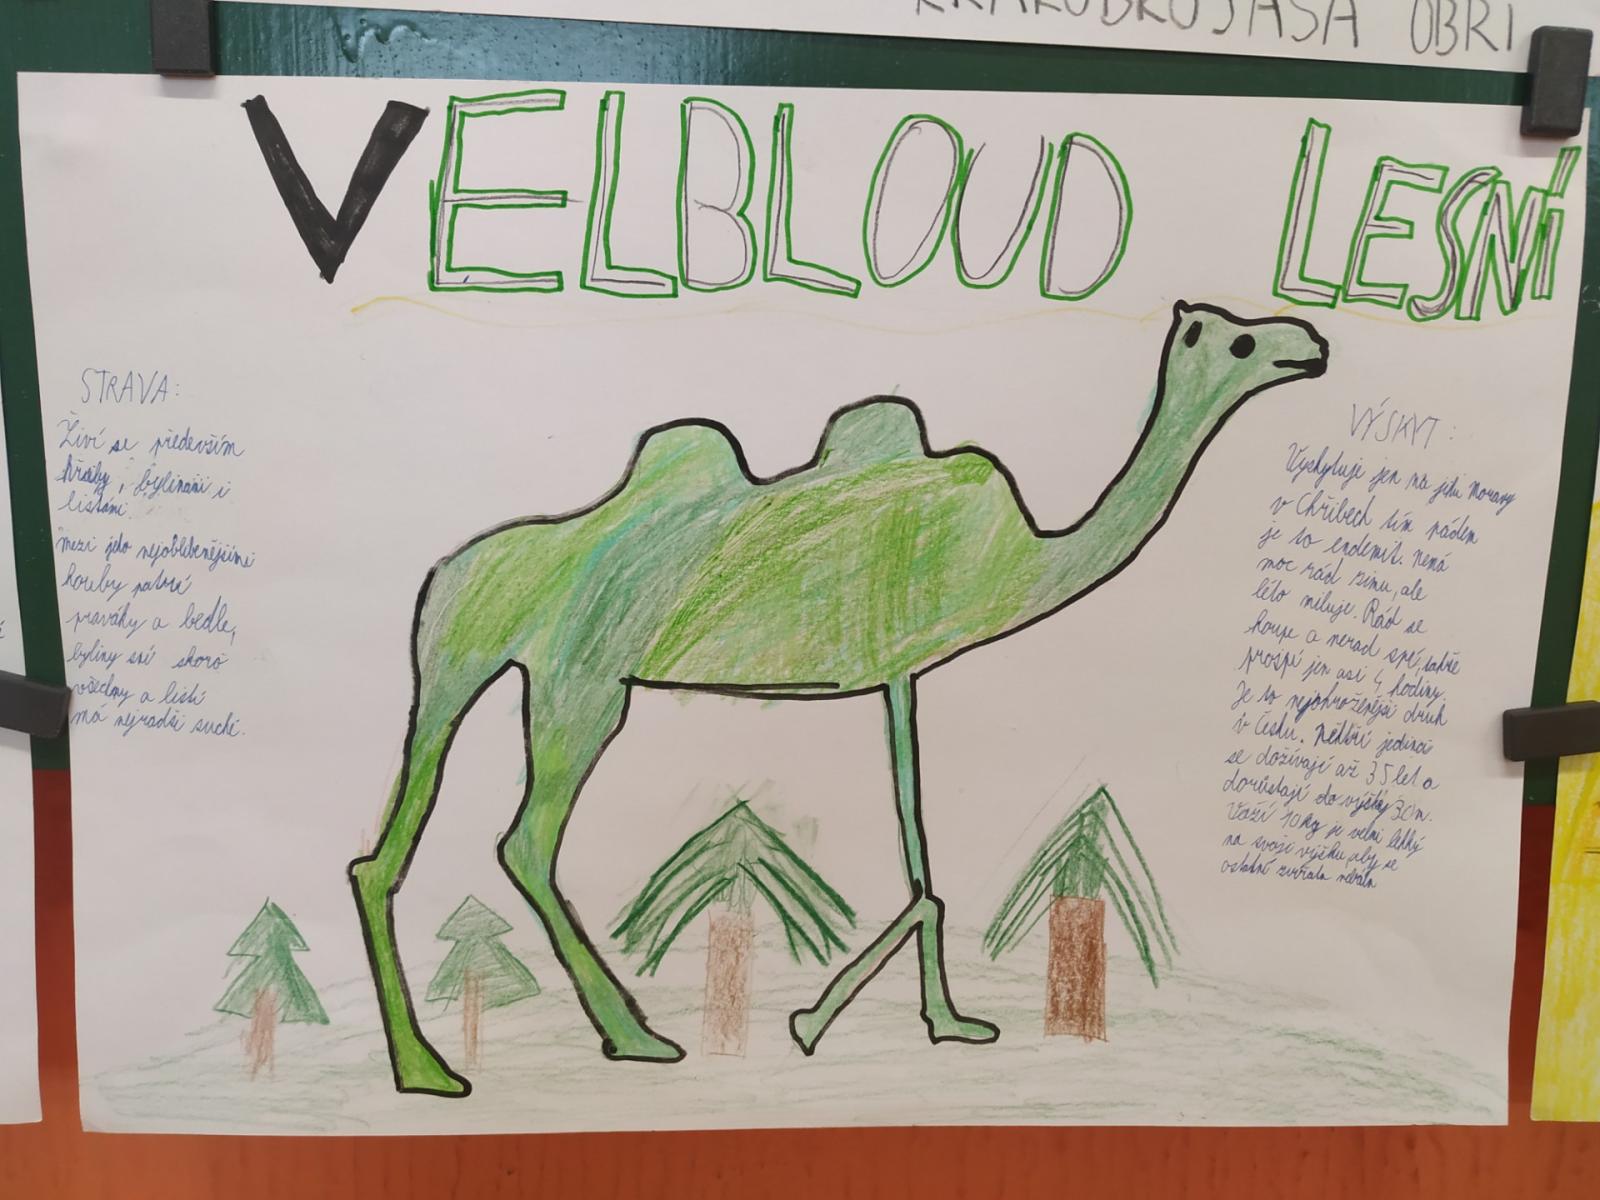 KRAKOBROJASA OBRI
VELBLOUD LESNÍ
STRAVA:
Živí se především
houby, bylinami i
listími.
mezi jeho nejoblíbenějšími
houby patří
praváky a bedle,
byliny sní skoro
všechny a listí
má nejradši suché.
VÝSKYT:
Vyskytuje jen na jihu Moravy
v Chřibech tím pádem
je to endemit. Nemá
moc rád zimu, ale
léto miluje. Rád se
koupe a nerad spí, takže
prospí jen asi 4 hodiny.
Je to nejohroženější druh
v Česku. Někteří jedinci
se dožívají až 35 let a
dorůstají do výšky 30m.
Váží 10kg je velmi lehký
na svoji výšku, aby se
ostatní zvířata nebála